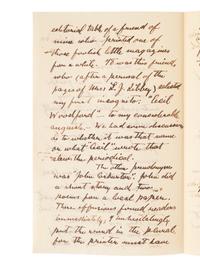 editorial table of a friend of
mine who printed one of
those foolish little magazines
for a while. It was this friend,
who (after a perusal of the
pages of Miss L. J. Libbey) selected
my first incognito; "Cecil
Woodford" - to my considerable
anguish - We had even discussions
as to whether it was that name
or what "Cecil" wrote that
slew the periodical.
The other pseudonym
was "John" did
a short story and two
poems for a local paper.
These effusions found readers
immediately, & unhesitatingly
for the printer must have